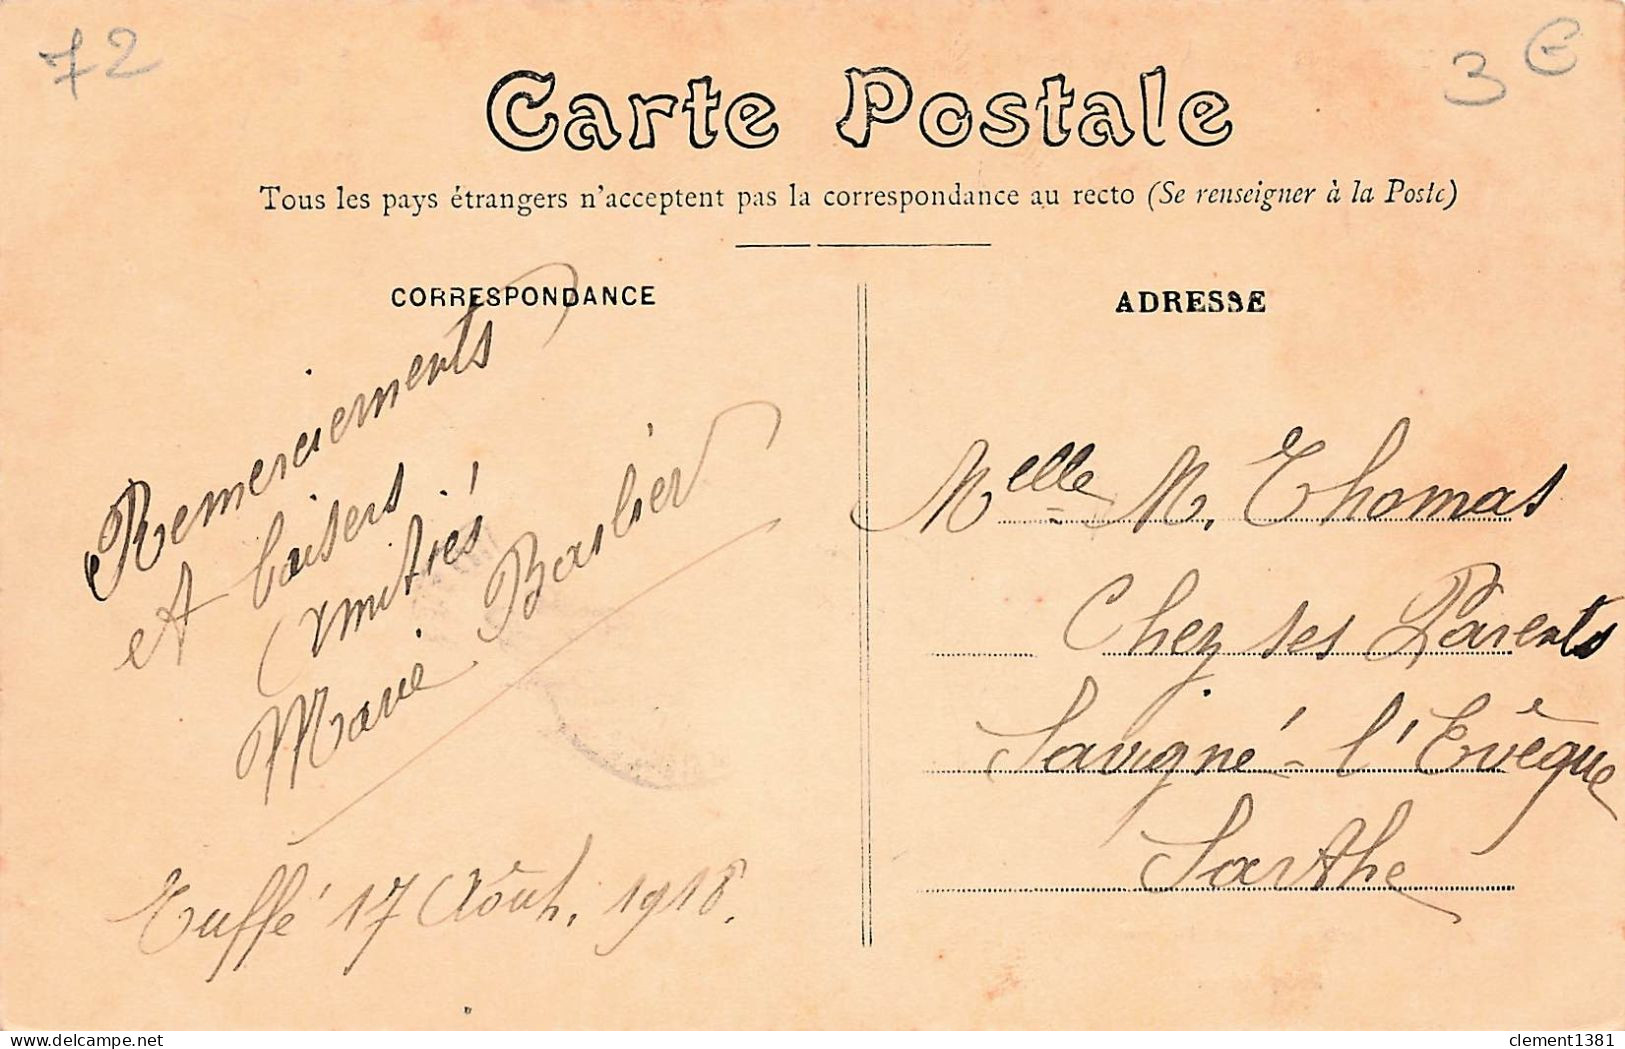 72
3 €
Carte Postale
Tous les pays étrangers n'acceptent pas la correspondance au recto (Se renseigner à la Poste)
CORRESPONDANCE
Remerciements
et baisers
Amitiés
Marie Barbier
Tuffé 17 Août. 1918.
ADRESSE
Melle M. Thomas
Chez ses Parents
Savigné-l'Evêque
Sarthe
delcampe.net
clement1381